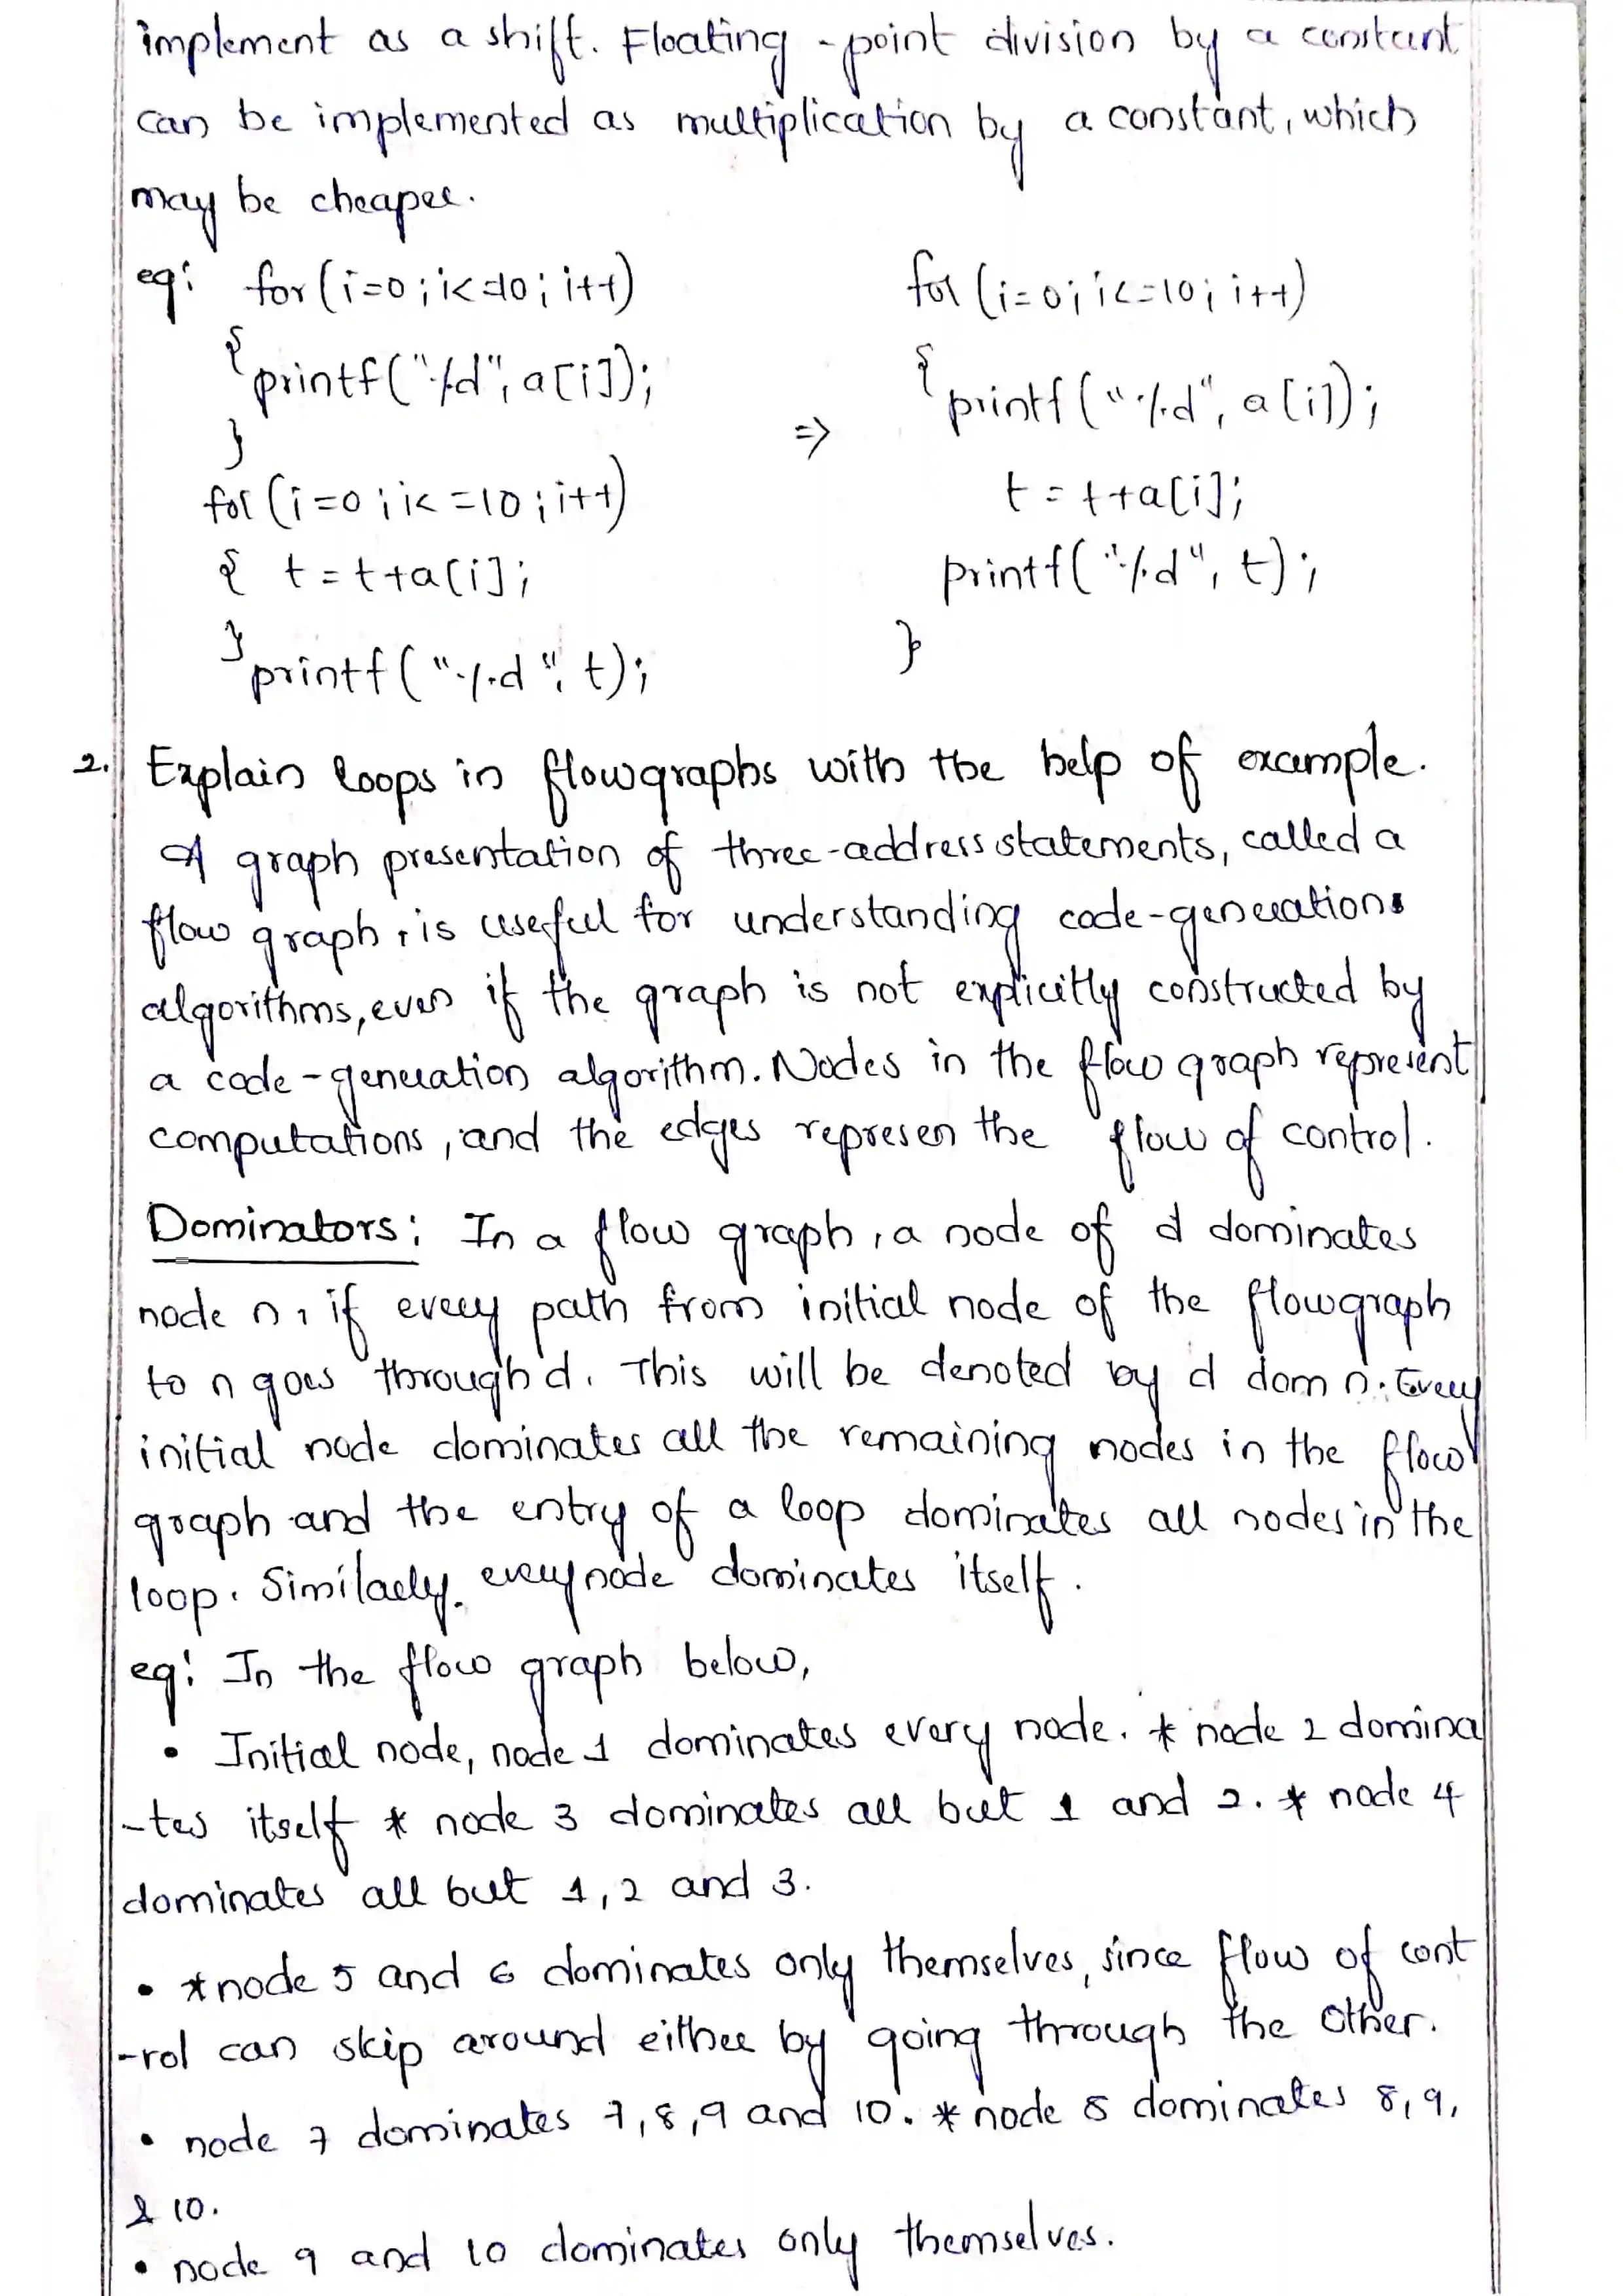 implement as a shift. Floating-point division by a constant
can be implemented as multiplication by a constant, which
may be cheaper.
eg: for(i=0; i<=10; i++)
{ printf("%d", a[i]);
}
for(i=0; i<=10; i++)
{ t=t+a[i];
} printf("%d", t);
⇒
for (i=0; i<=10; i++)
{ printf("%d", a[i]);
t=t+a[i];
printf("%d", t);
}
2. Explain loops in flowgraphs with the help of example.
A graph presentation of three-address statements, called a
flow graph, is useful for understanding code-generation
algorithms, even if the graph is not explicitly constructed by
a code-generation algorithm. Nodes in the flow graph represent
computations, and the edges represen the flow of control.
Dominators: In a flow graph, a node of d dominates
node n, if every path from initial node of the flowgraph
to n goes through d. This will be denoted by d dom n. Every
initial node dominates all the remaining nodes in the flow
graph and the entry of a loop dominates all nodes in the
loop. Similarly. every node dominates itself.
eg: In the flow graph below,
• Initial node, node 1 dominates every node. * node 2 domina
-tes itself * node 3 dominates all but 1 and 2. * node 4
dominates all but 1, 2 and 3.
• *node 5 and 6 dominates only themselves, since flow of cont
-rol can skip around either by going through the other.
• node 7 dominates 7, 8, 9 and 10. * node 8 dominates 8, 9,
& 10.
• node 9 and 10 dominates only themselves.